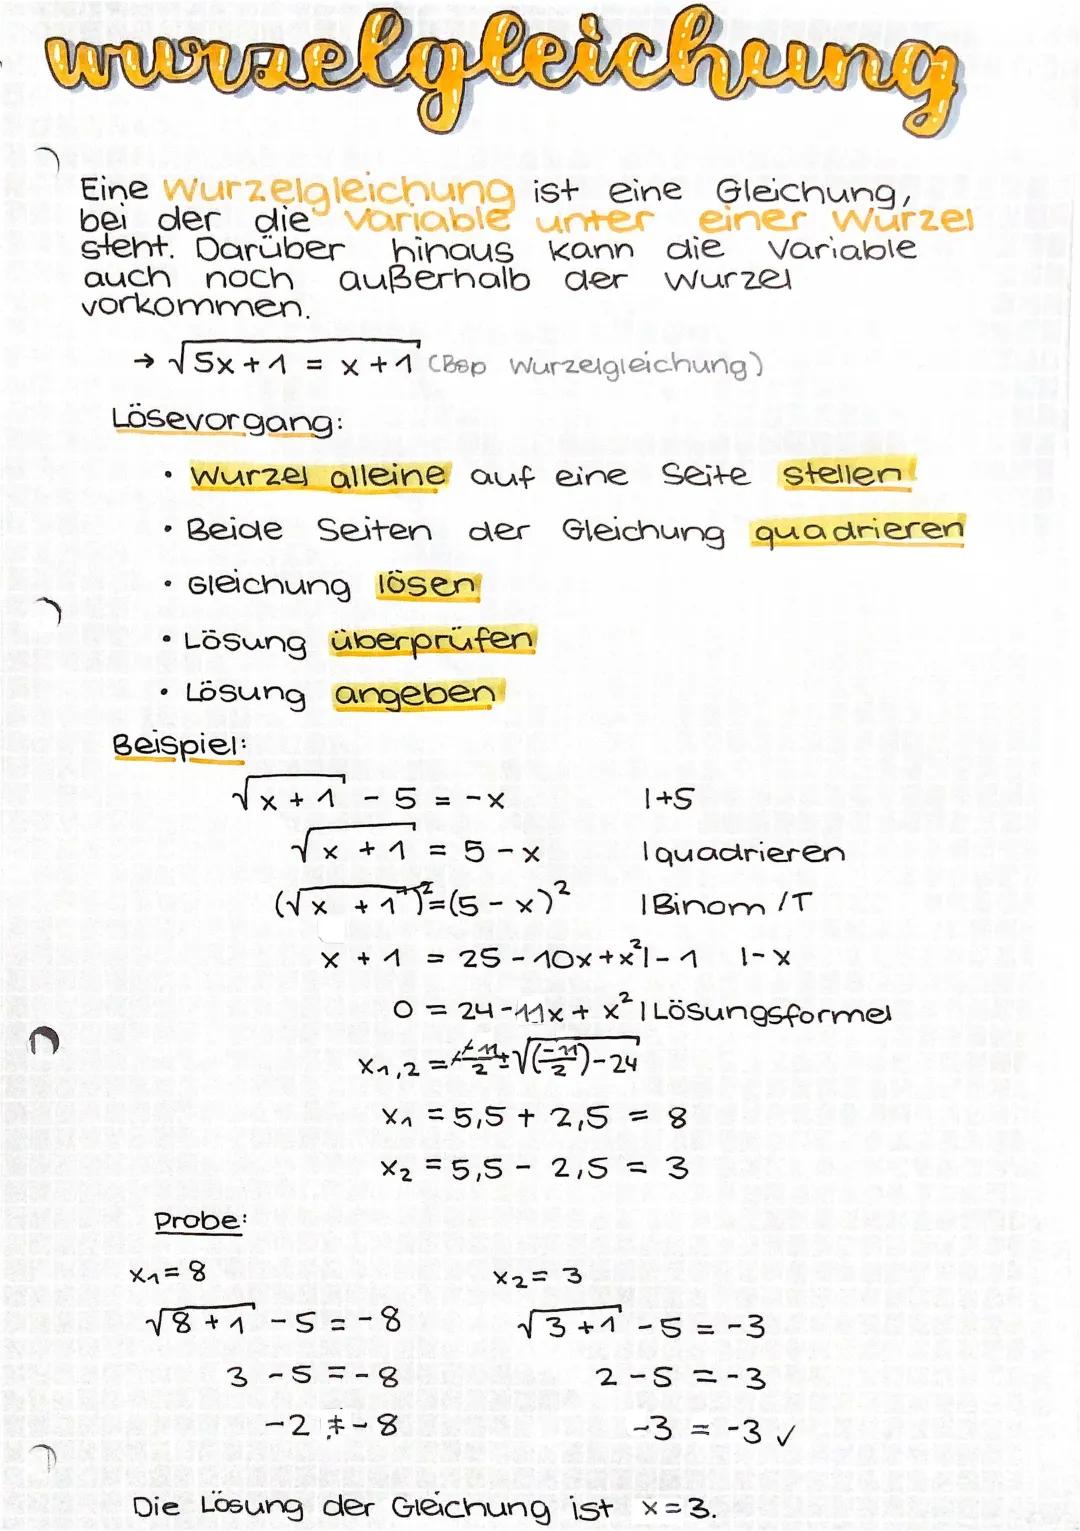 wurzelgleichung
Eine Wurzelgleichung ist eine Gleichung,
bei der die Variable unter einer Wurzel
steht. Darüber hinaus kann die Variable
auch noch außerhalb der Wurzel
vorkommen.
→ √5x+1 = x+1 (Bsp Wurzelgleichung)
Lösevorgang:
• Wurzel alleine auf eine Seite stellen
• Beide Seiten der Gleichung quadrieren
• Gleichung lösen
• Lösung überprüfen
• Lösung angeben
Beispiel:
√x+1 - 5 = -x |+5
√x+1 = 5-x |quadrieren
(√x+1)²=(5-x)² |Binom /T
x+1 = 25-10x+x² |-1 |-x
0 = 24-11x+x² |Lösungsformel
x1,2 = -(-11/2) ± √(-11/2)-24
x1 = 5,5 + 2,5 = 8
x2 = 5,5 - 2,5 = 3
Probe:
x1=8 x2=3
√8+1 -5=-8 √3+1 -5=-3
3-5=-8 2-5=-3
-2≠-8 -3=-3 ✓
Die Lösung der Gleichung ist x=3.